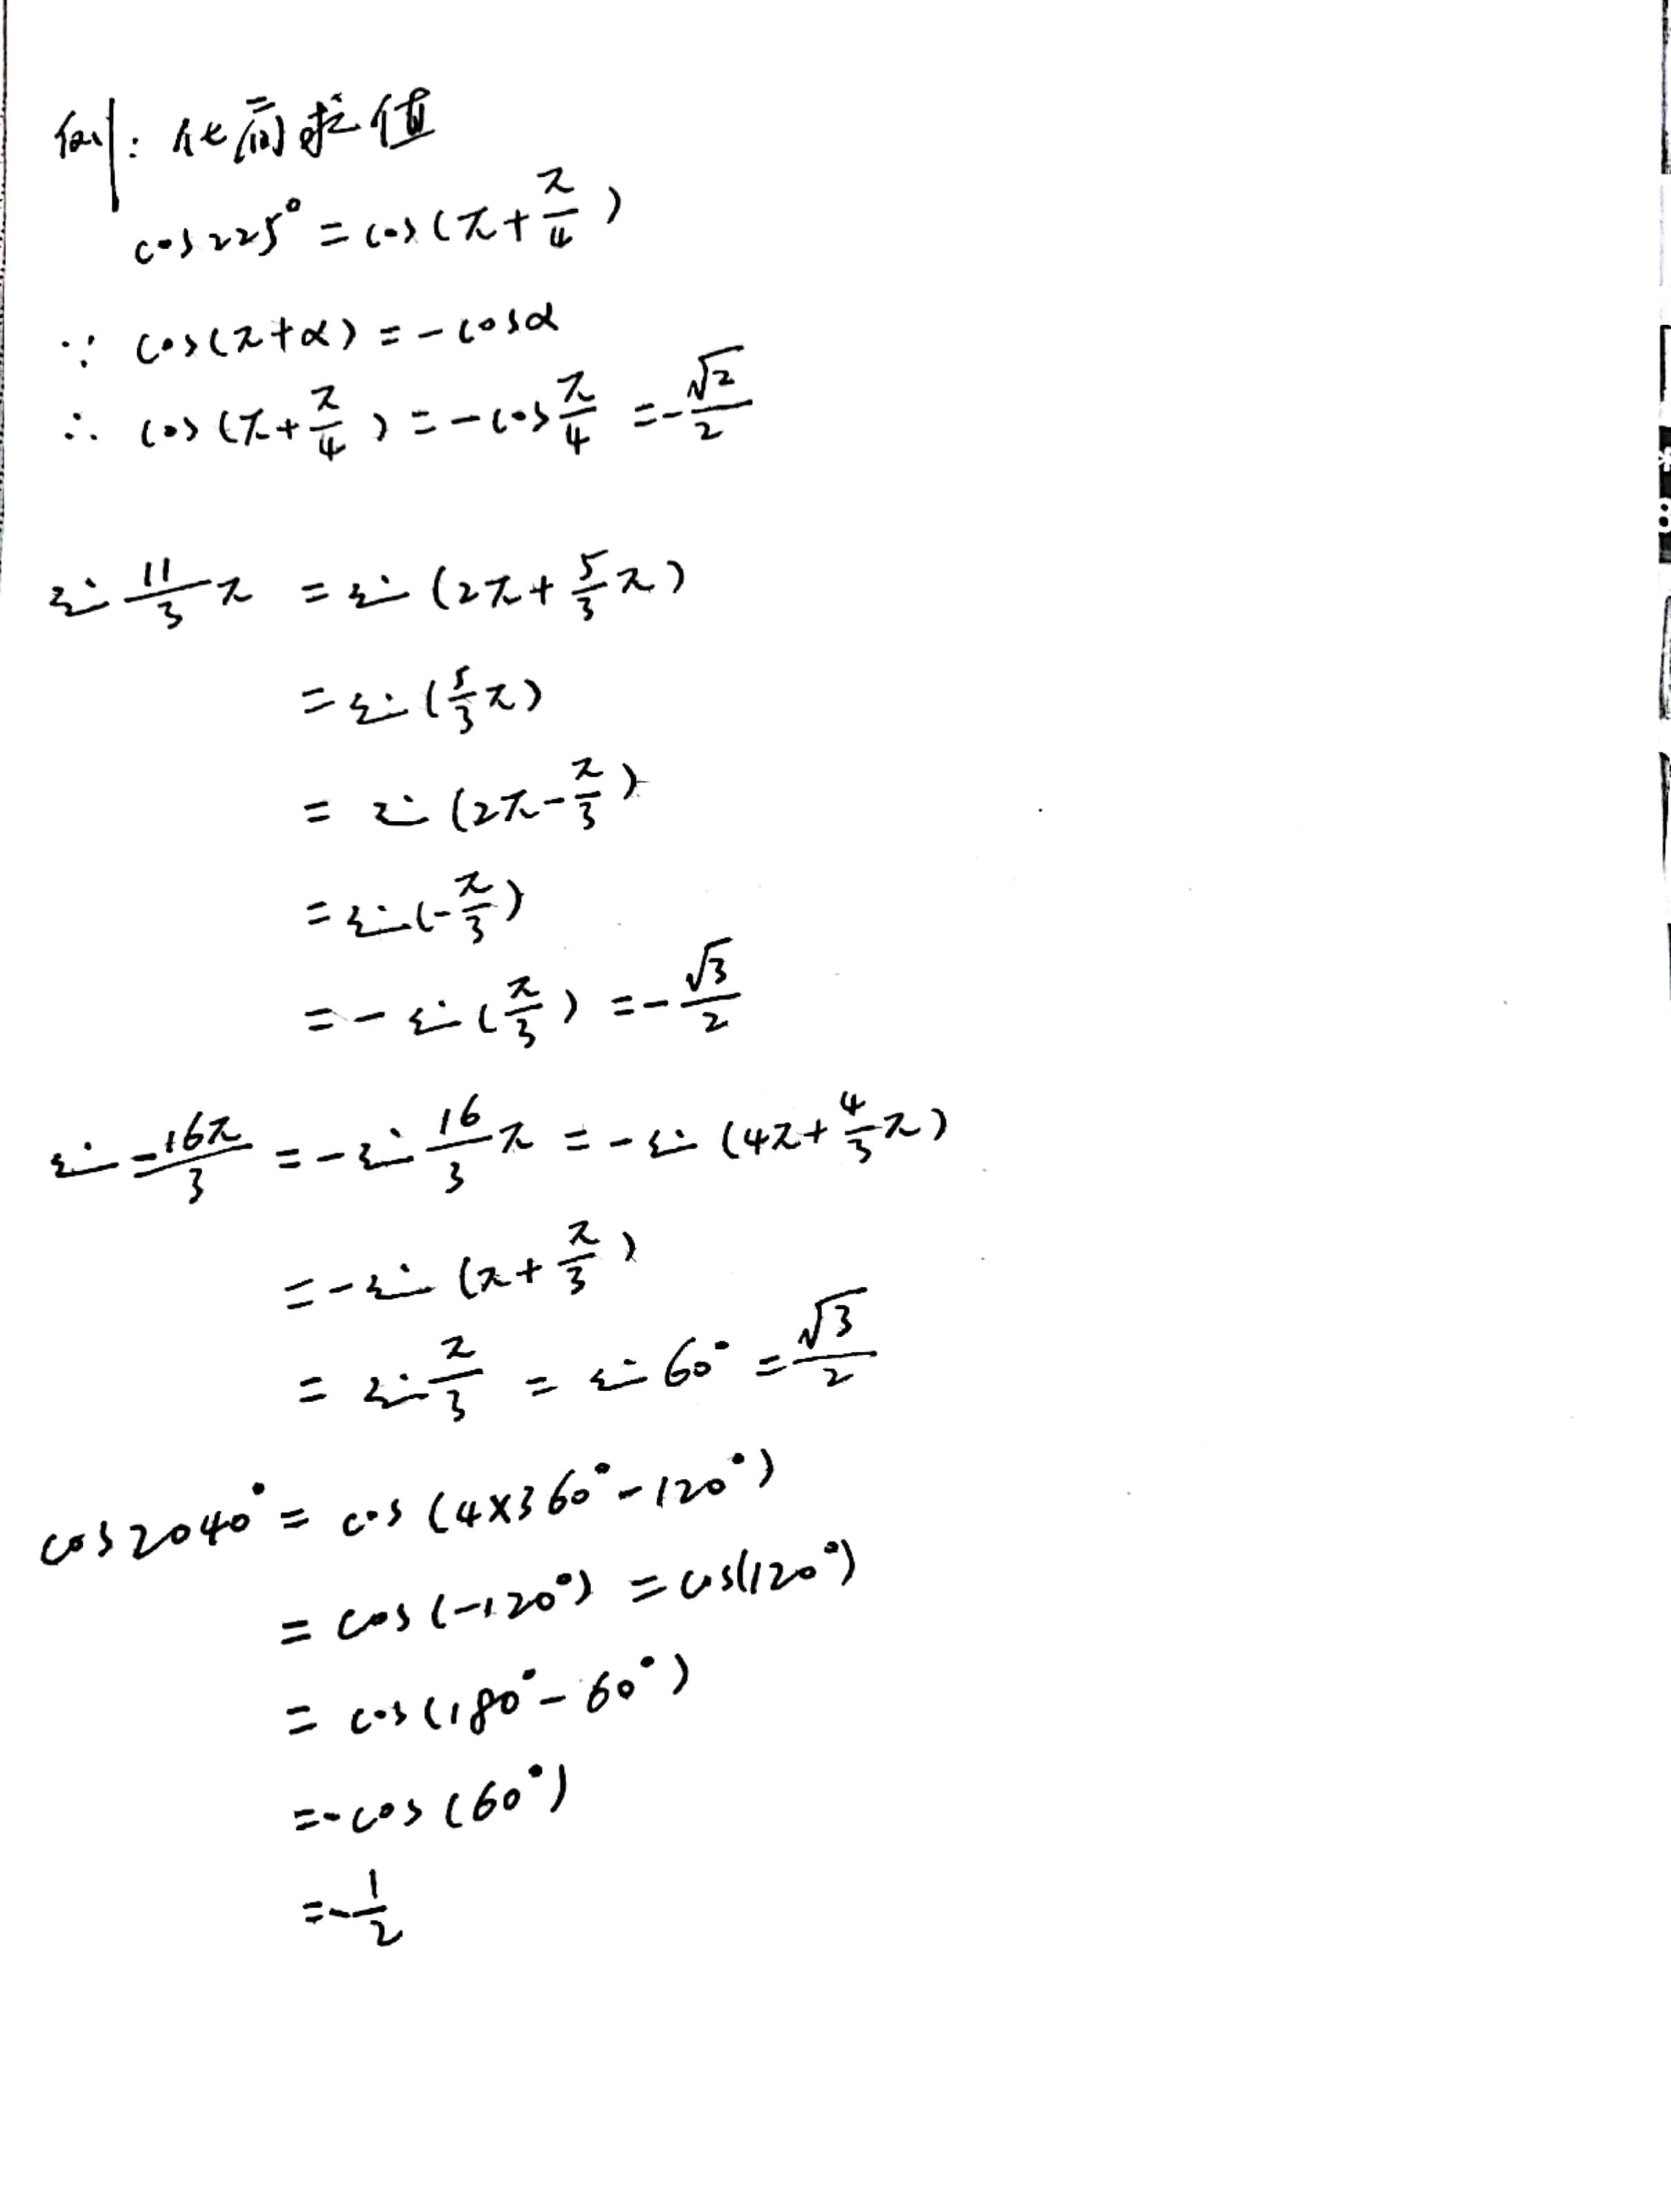 例：化简求值
cos225° = cos(π+π/4)
∵ cos(π+α) = -cosα
∴ cos(π+π/4) = -cosπ/4 = -√2/2
sin 11/3 π = sin (2π+5/3π)
= sin (5/3π)
= sin (2π-π/3)
= sin(-π/3)
= - sin (π/3) = -√3/2
sin -16π/3 = -sin 16/3 π = - sin (4π+4/3π)
= - sin (π+π/3)
= sin π/3 = sin 60° = √3/2
cos2040° = cos (4×360°-120°)
= cos (-120°) = cos(120°)
= cos(180°-60°)
= -cos (60°)
= -1/2